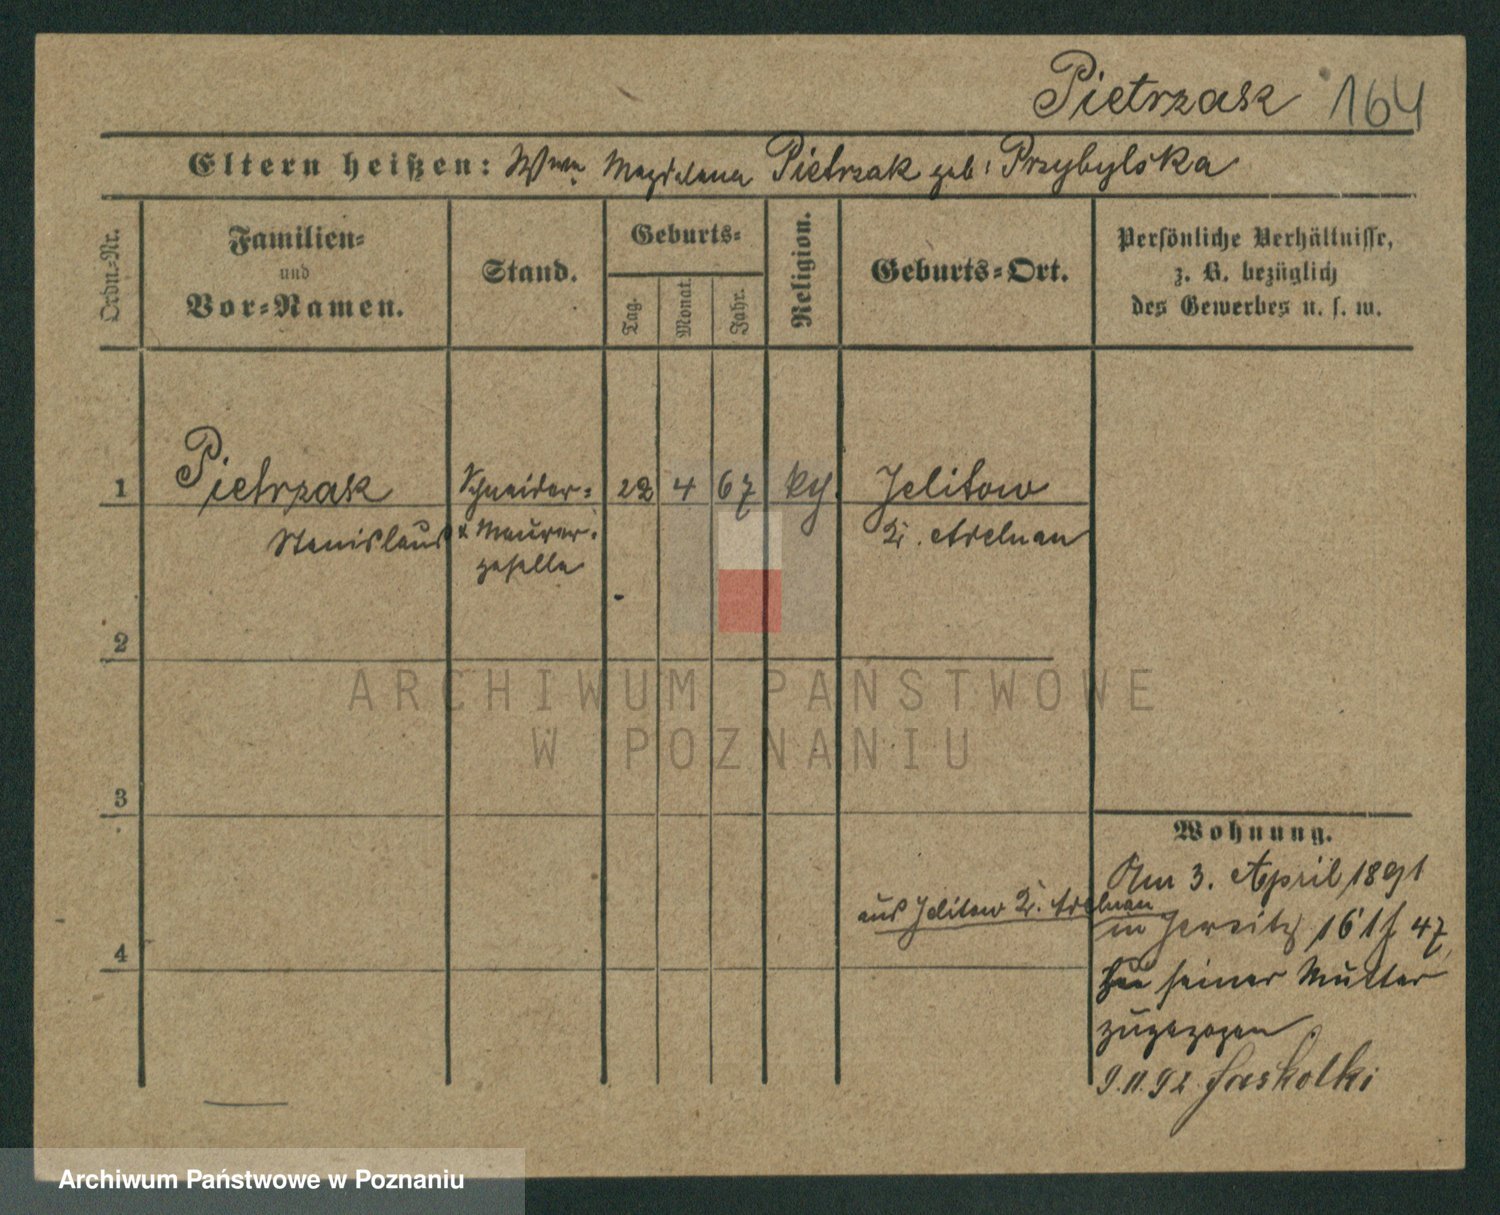 Pietrzak 164
Eltern heißen: Wwe. Magdalena Pietrzak geb: Przybylska
Ordn.-Nr.
Familien-
und
Vor-Namen.
Stand.
Geburts-
Tag.
Monat.
Jahr.
Religion.
Geburts-Ort.
Persönliche Verhältnisse,
z. B. bezüglich
des Gewerbes u. s. w.
1 Pietrzak Schneider- 22 4 67 Jelitowo
Stanislaus & Maurer- Kr. Adelnau
geselle
2
ARCHIWUM PAŃSTWOWE
W POZNANIU
3
Wohnung.
Am 3. April 1891
aus Jelitow Kr. Adelnau
in Jersitz 161 47
4
seiner Mutter
zugezogen
9.11.92
Archiwum Państwowe w Poznaniu